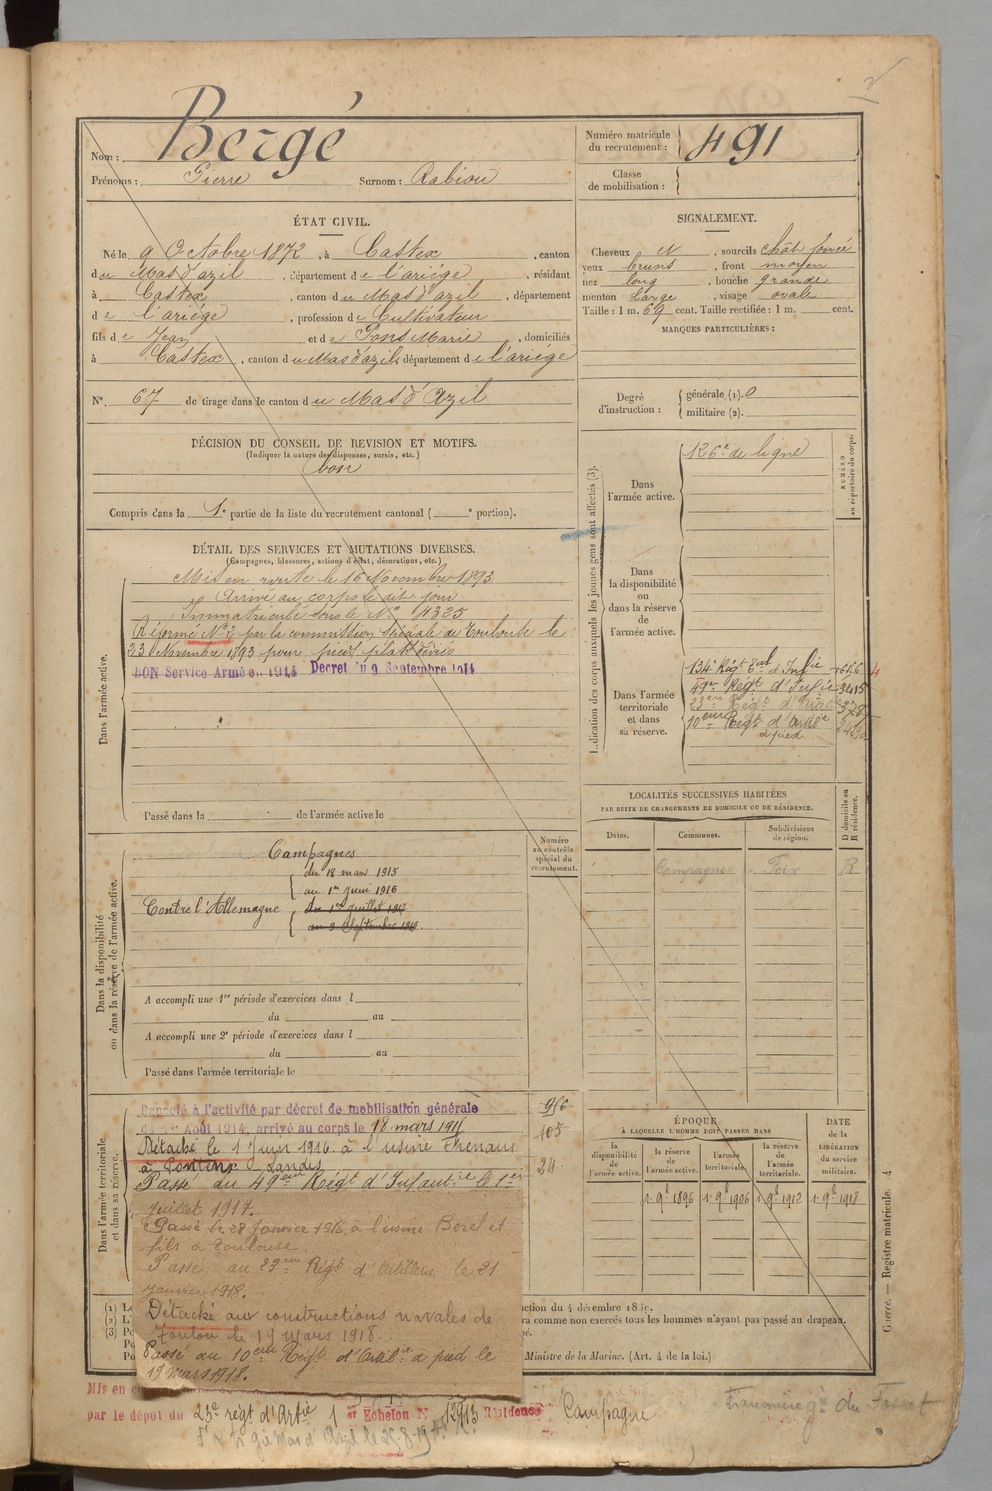 Nom : Bergé
Prénoms : Pierre Surnom : Rabiou
Numéro matricule du recrutement : 491
Classe de mobilisation :
ÉTAT CIVIL.
Né le 9 Octobre 1872, à Castex, canton
du Mas d'azil, département de l'ariège, résidant
à Castex, canton du Mas d'azil, département
de l'ariège, profession de Cultivateur
fils de Jean et de Pons Marie, domiciliés
à Castex, canton du Mas d'azil, département de l'ariège
N° 67 de tirage dans le canton du Mas d'Azil
SIGNALEMENT.
Cheveux et, sourcils chât foncé
yeux bruns, front moyen
nez long, bouche grande
menton large, visage ovale
Taille : 1 m. 69 cent. Taille rectifiée : 1 m. cent.
MARQUES PARTICULIÈRES :
Degré d'instruction : générale (1). 0
militaire (2).
DÉCISION DU CONSEIL DE REVISION ET MOTIFS.
(Indiquer la nature des dispenses, sursis, etc.)
bon
Compris dans la 1e partie de la liste du recrutement cantonal ( e portion).
DÉTAIL DES SERVICES ET MUTATIONS DIVERSES.
(Campagnes, blessures, actions d'éclat, décorations, etc.)
Dans l'armée active.
Mis en route le 16 Novembre 1893
Arrivé au corps le dit jour
Immatriculé sous le N° 4325
Réformé N° 2 par la commission spéciale de Toulouse le
23 Novembre 1893 pour pieds plats
BON Service Armé en 1914 Decret du 9 Septembre 1914
Passé dans la de l'armée active le
Indication des corps auxquels les jeunes gens sont affectés (3).
NUMÉRO au répertoire du corps.
Dans l'armée active.
126e de ligne
Dans la disponibilité ou dans la réserve de l'armée active.
Dans l'armée territoriale et dans sa réserve.
134e Régt d'Infie
49e Régt d'Infie 3415
23eme Régt d'Artil
10eme Régt d'Artie
à pied
LOCALITÉS SUCCESSIVES HABITÉES
PAR SUITE DE CHANGEMENTS DE DOMICILE OU DE RÉSIDENCE.
Dates. Communes. Subdivisions de région. D domicile ou R résidence.
Campagne Foix R
Numéro au contrôle spécial du recrutement.
Dans la disponibilité ou dans la réserve de l'armée active.
Campagnes
Contre l'Allemagne
du 18 mars 1915
au 1er Juin 1916
du 1er Juillet 1917
au 3 Septembre
A accompli une 1re période d'exercices dans l
du au
A accompli une 2e période d'exercices dans l
du au
Passé dans l'armée territoriale le
Dans l'armée territoriale et dans sa réserve.
Rappelé à l'activité par décret de mobilisation générale
du 1er Août 1914, arrivé au corps le 18 mars 1915
Détaché le 1 Juin 1916 à l'usine
à Pontenx Landes
Passé au 49eme Régt d'Infantie le 1er
Juillet 1917.
Passé le 28 Janvier 1916, à l'usine Borel et
fils à Toulouse.
Passé au 23eme Régt d'Artillerie le 21
Janvier 1918.
Détaché aux constructions navales de
Toulon le 19 mars 1918.
Passé au 10eme Régt d'Artile à pied le
19 mars 1918.
956
105
24
ÉPOQUE
À LAQUELLE L'HOMME DOIT PASSER DANS
DATE de la LIBÉRATION du service militaire.
la disponibilité de l'armée active.
la réserve de l'armée active.
l'armée territoriale.
la réserve de l'armée territoriale.
1r 9b 1896 1r 9b 1906 1r 9b 1912 1r 9b 1918
Guerre. — Registre matricule. 4
Ministre de la Marine. (Art. 4 de la loi.)
par le dépôt du 23e régt d'Artie 1 er Echelon N° 12913 Résidence Campagne